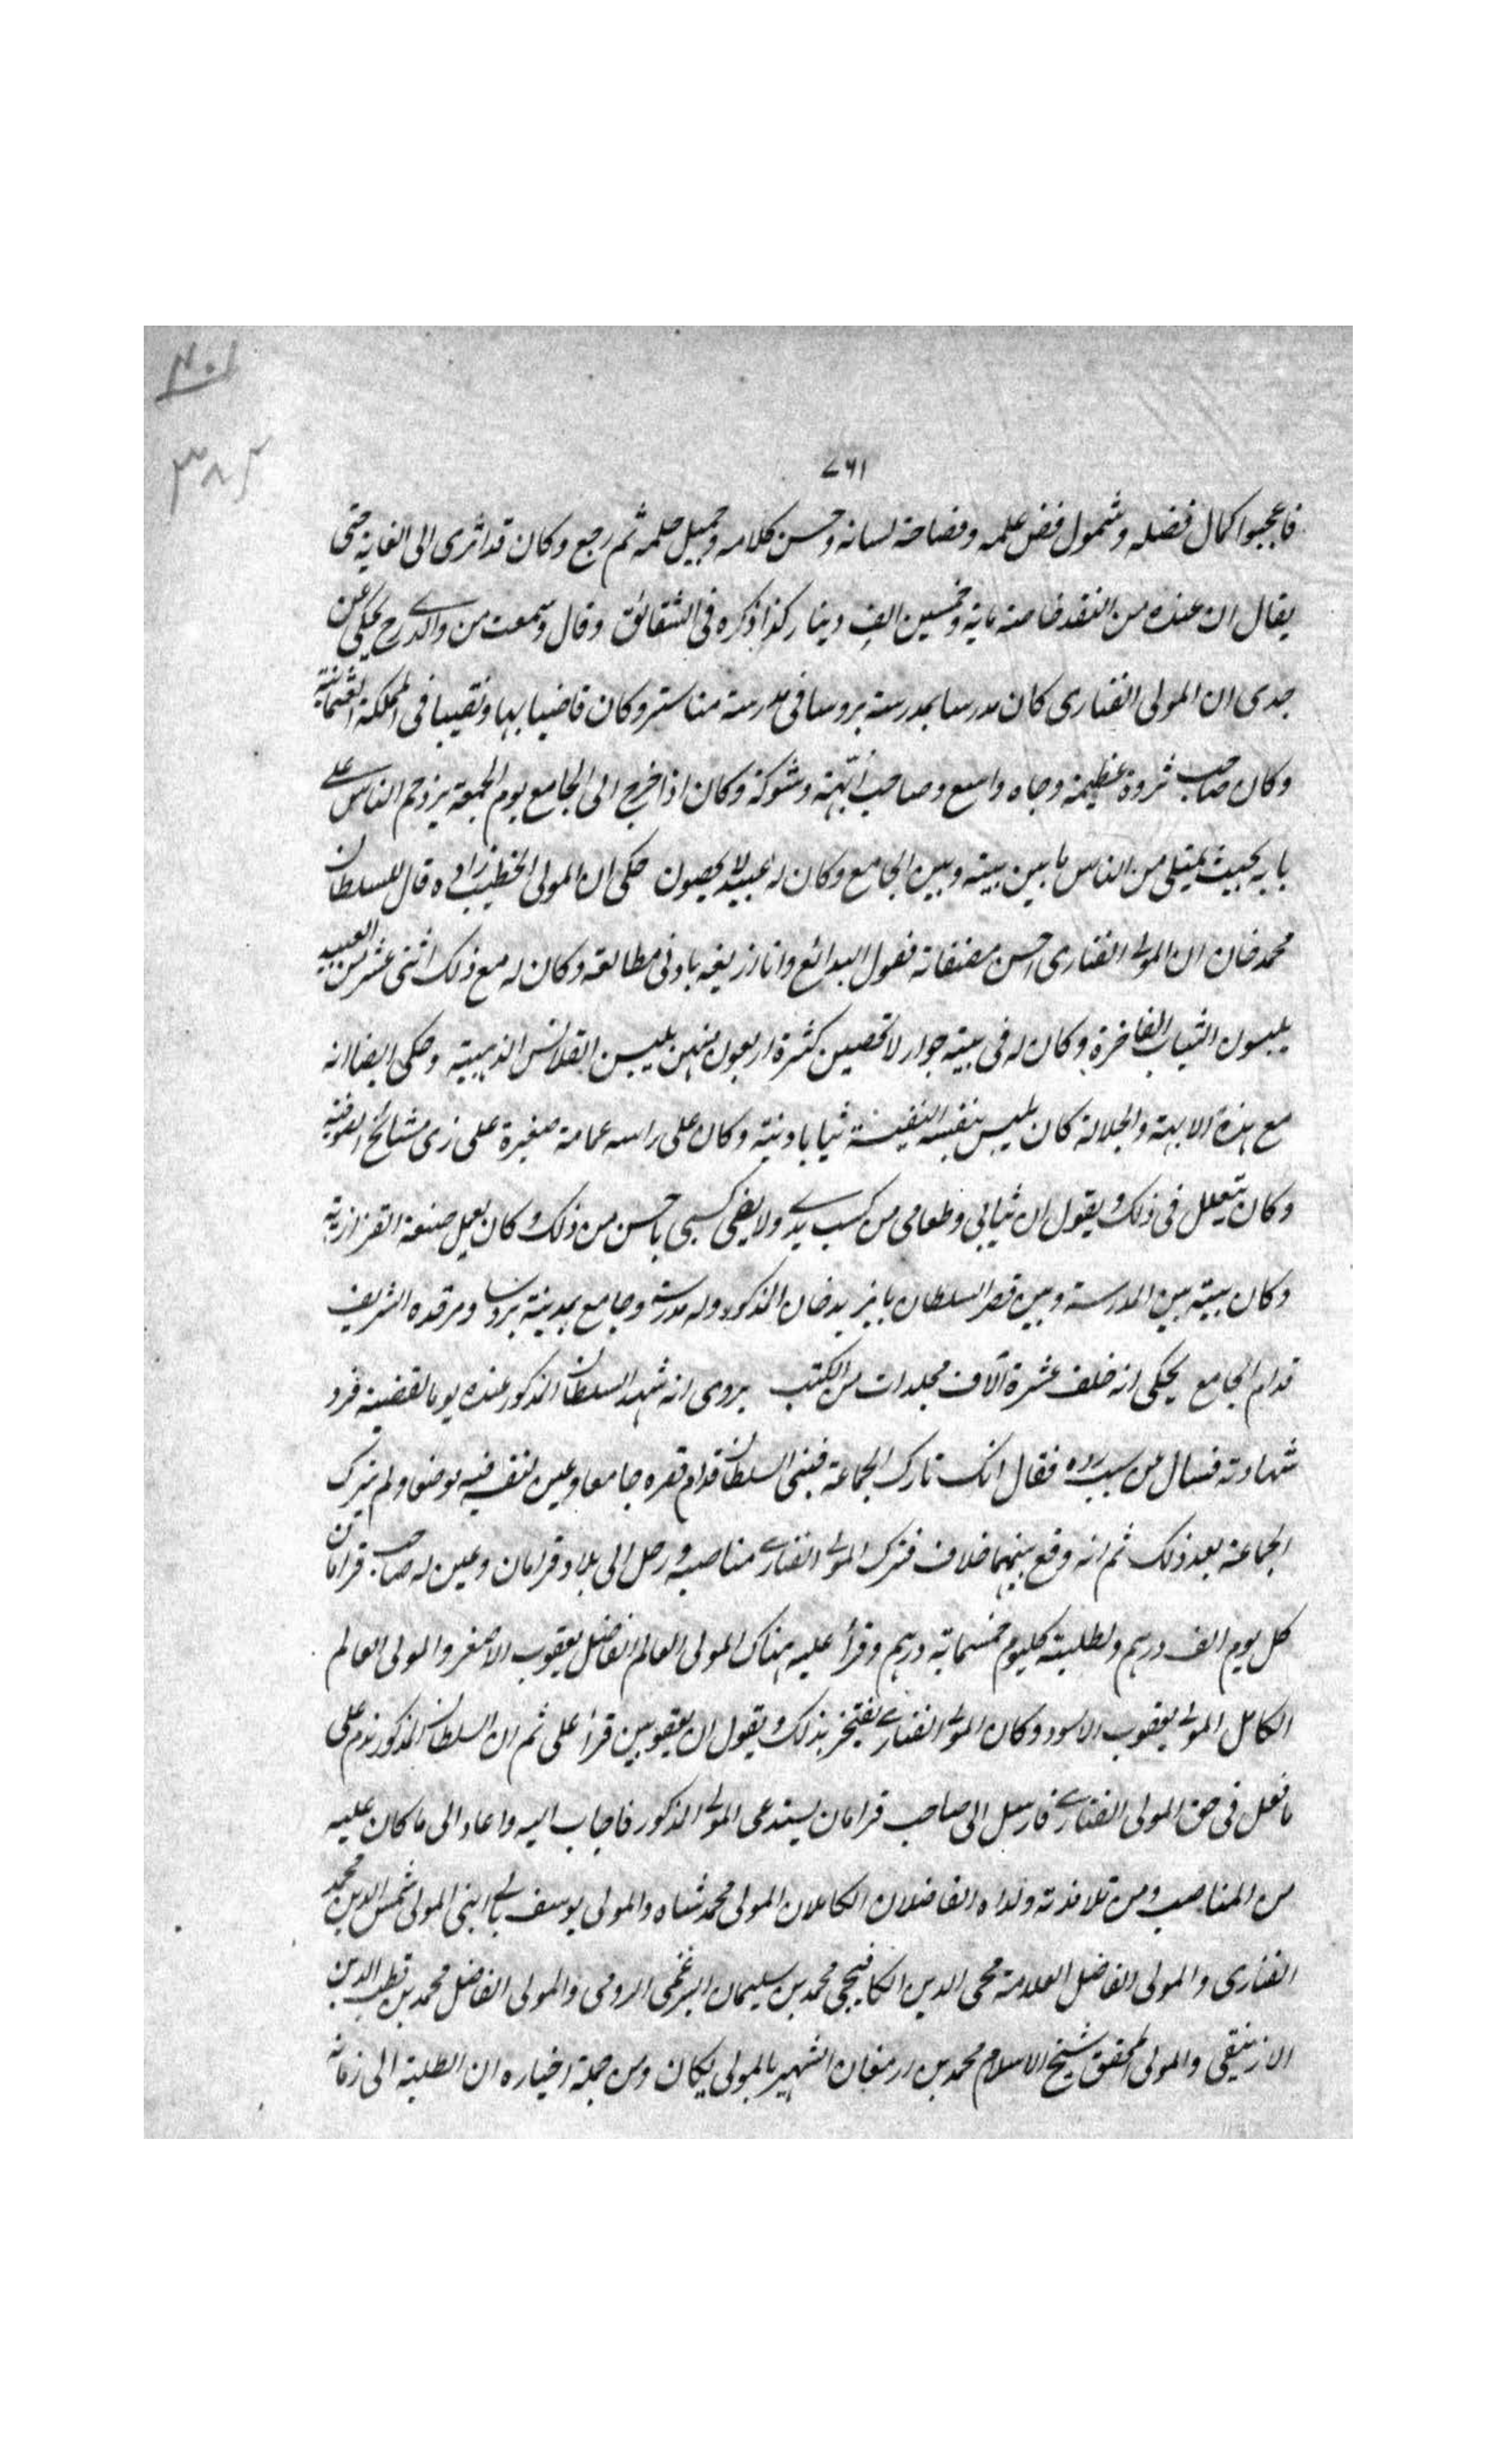 ٧٦١
فاعجبوا كمال فضله وشمول فضل علمه وفصاحة لسانه وحسن كلامه وجميل حلمه ثم رجع وكان قد اثرى الى الغاية حتى
يقال ان عنده من النقد خاصة ماية وخمسين الف دينار كذا ذكره فى الشقائق وقال وسمعت من والدى رح يحكى عن
جدى ان المولى الفنارى كان مدرسا بمدرسة بروسا فى مدرسة مناستر وكان قاضيا بها ونقيبا فى المملكة العثمانية
وكان صاحب ثروة عظيمة وجاه واسع وصاحب ابّهة وشوكة وكان اذا خرج الى الجامع يوم الجمعة يزدحم الناس على
بابه بحيث يمتلى من الناس ما بين بيته وبين الجامع وكان له عبيد لا يحصون حكى ان المولى الخطيب زاده قال للسلطان
محمد خان ان المولى الفنارى احسن مصنفاته فصول البدائع وانا ازيفه بادنى مطالعة وكان له مع ذلك اثنى عشر من العبيد
يلبسون الثياب الفاخرة وكان له فى بيته جوار لا تحصين كثرة اربعون منهن يلبسن القلانس الذهبية وحكى ايضا انه
مع هذه الابهة والجلالة كان يلبس بنفسه النفيسة ثيابا دنية وكان على راسه عمامة صغيرة على زى مشائخ الصوفية
وكان يتعلل فى ذلك ويقول ان ثيابى وطعامى من كسب يدى ولا يفى كسبى باحسن من ذلك وكان يعمل صنعة القزازية
وكان بيته بين المدرسة وبين قصر السلطان بايزيد خان المذكور وله مدرسة وجامع بمدينة بروسا ومرقده الشريف
قدام الجامع يحكى انه خلف عشرة آلاف مجلدات من الكتب يروى انه شهد السلطان المذكور عنده يوما لقضية فرد
شهادته فسال عن سبب رده فقال انك تارك الجماعة فبنى السلطان قدام قصره جامعا وعين لنفسه فيه موضعا ولم يترك
الجماعة بعد ذلك ثم انه وقع بينهما خلاف فترك المولى الفنارى مناصبه ورحل الى بلاد قرامان وعين له صاحب قرامان
كل يوم الف درهم ولطلبته كل يوم خمسماية درهم وقرأ عليه هناك المولى العالم الفاضل يعقوب الاصفر والمولى العالم
الكامل المولى يعقوب الاسود وكان المولى الفنارى يفتخر بذلك ويقول ان يعقوبين قرأ على ثم ان السلطان المذكور ندم على
ما فعل فى حق المولى الفنارى فارسل الى صاحب قرامان يستدعى المولى المذكور فاجاب اليه واعاد الى ما كان عليه
من المناصب ومن تلامذته ولداه الفاضلان الكاملان المولى محمد شاه والمولى يوسف بالى ابنى المولى شمس الدين محمد
الفنارى والمولى الفاضل العلامة محى الدين الكافيجى محمد بن سليمان البرغمى الرومى والمولى الفاضل محمد بن قطب الدين
الازنيقى والمولى المحقق شيخ الاسلام محمد بن ارمغان الشهير بالمولى يكان ومن جملة اخباره ان الطلبة الى زمانه